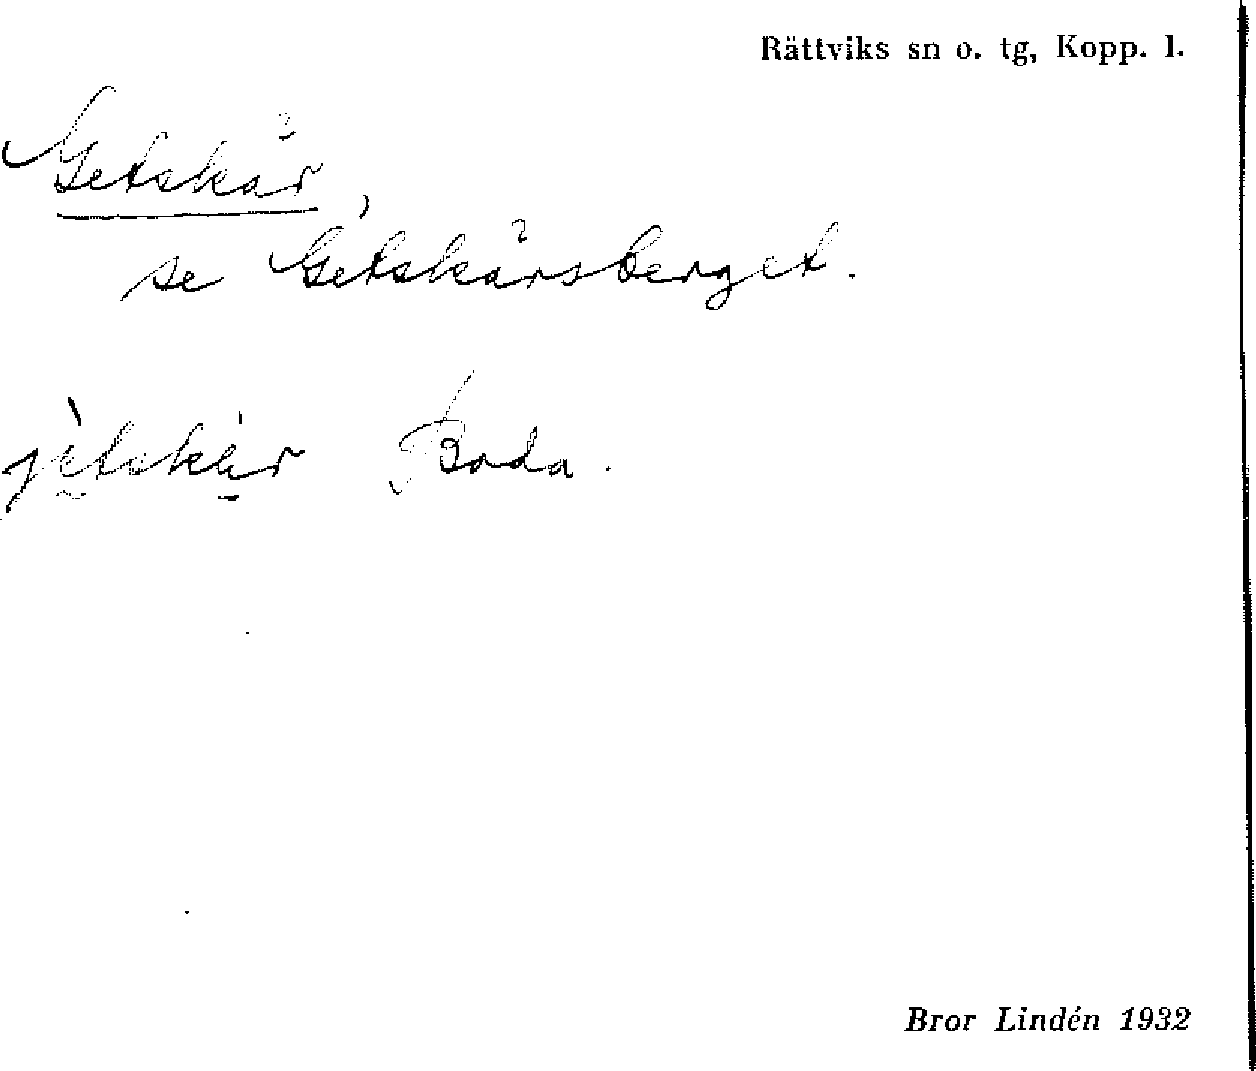 Rättviks sn o. tg, Kopp. l.
Getskär,
se Getskärsberget.
Boda.
Bror Lindén 1932